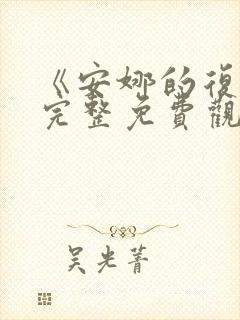 《安娜的復
完整免費觀
吴光菁